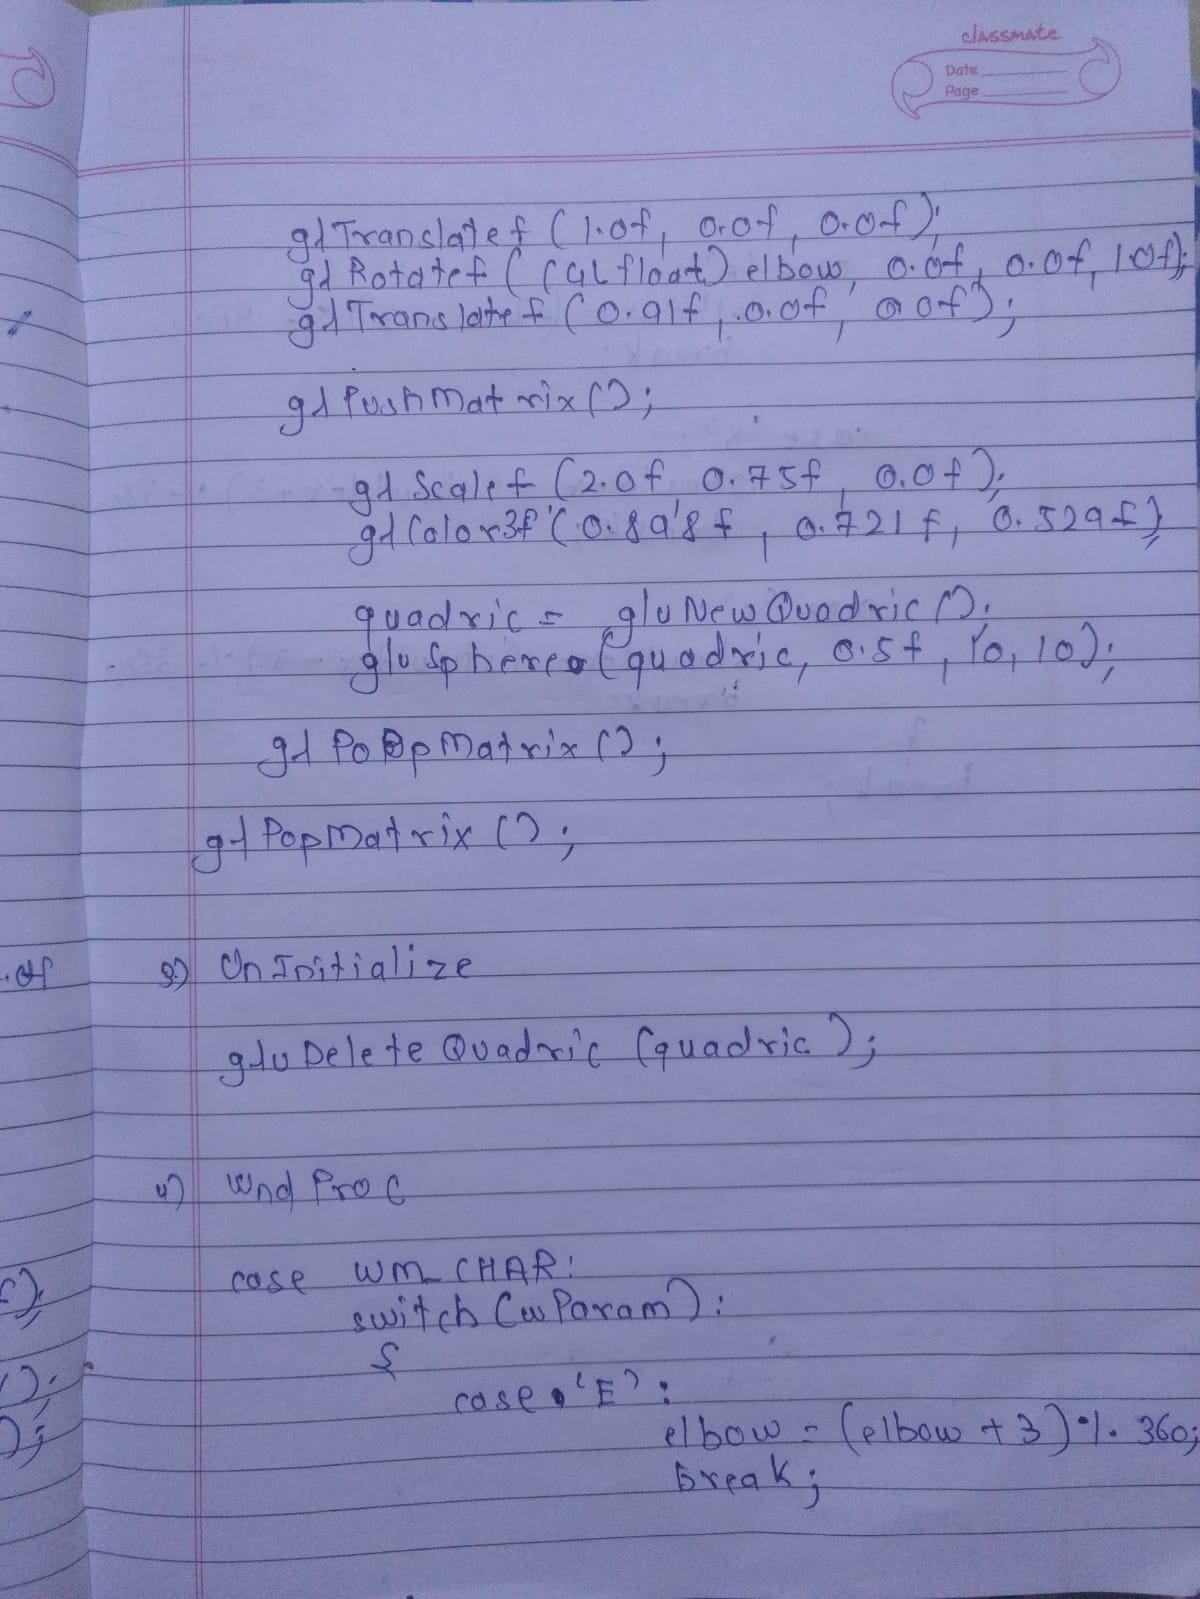 classmate
Date
Page
glTranslatef (1.0f, 0.0f, 0.0f);
glRotatef ((GLfloat) elbow, 0.0f, 0.0f, 1.0f);
glTranslatef (0.91f, 0.0f, 0.0f);
glPushMatrix();
glScalef (2.0f, 0.75f, 0.0f);
glColor3f (0.898f, 0.721f, 0.529f);
quadric = gluNewQuadric();
gluSphere (quadric, 0.5f, 10, 10);
glPopMatrix();
glPopMatrix();
.0f
3) UnInitialize
gluDeleteQuadric (quadric);
4) WndProc
case WM_CHAR:
switch (wParam):
{
case 'E':
elbow = (elbow + 3) % 360;
break;